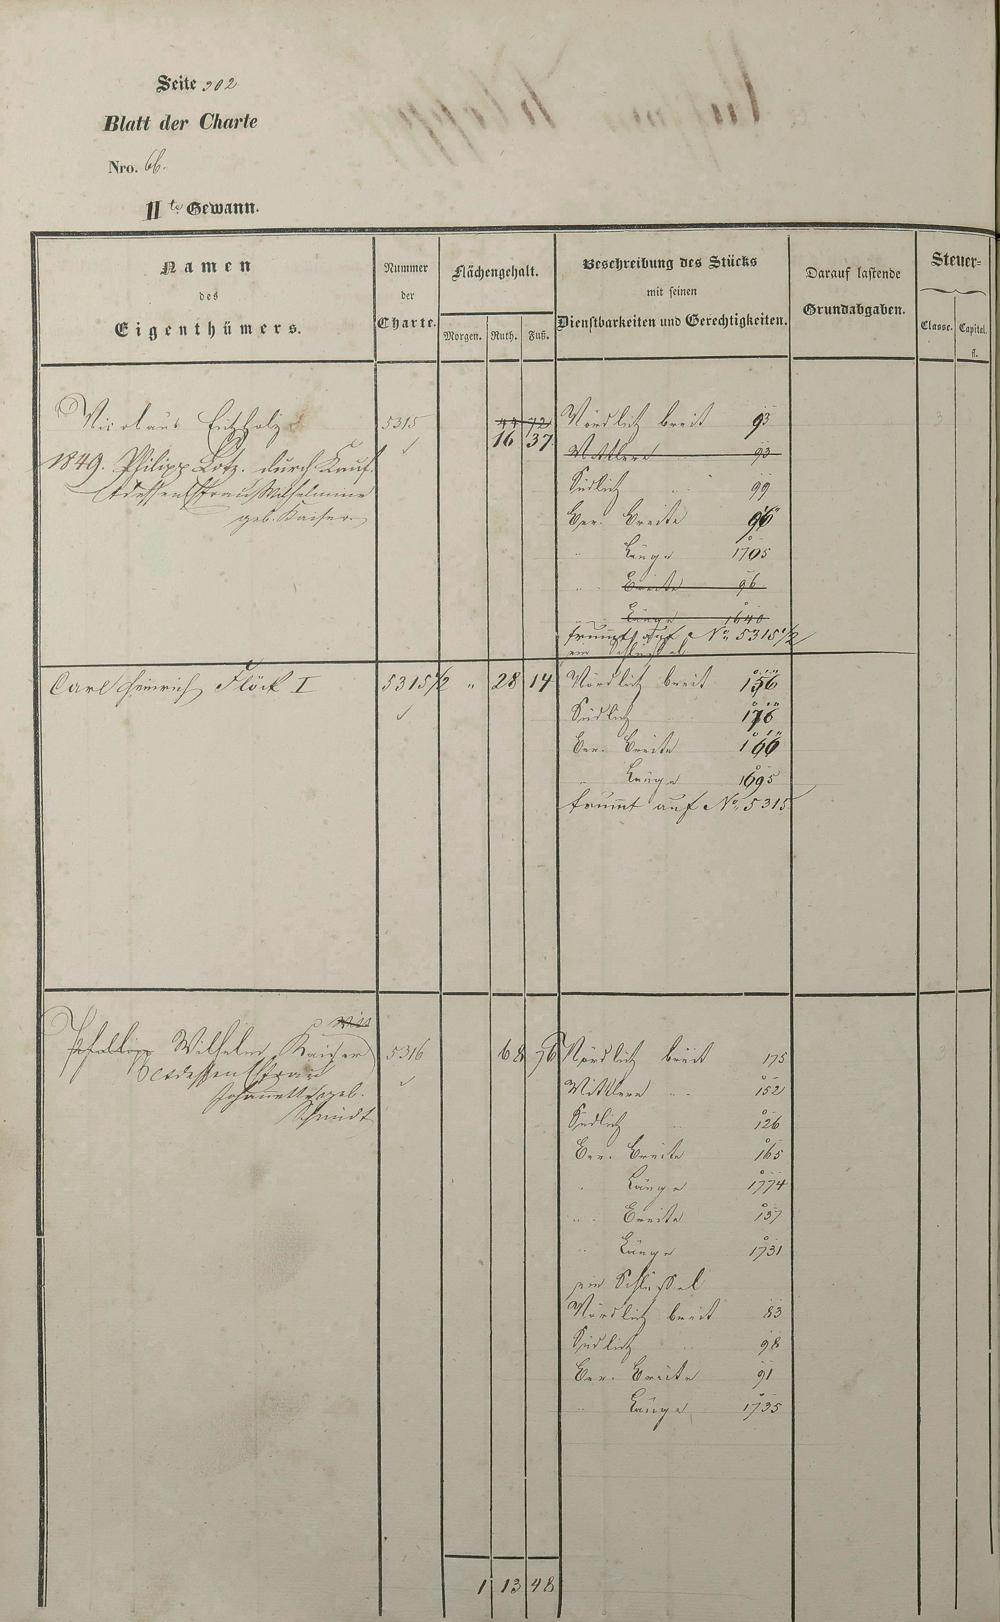 Seite 302
Blatt der Charte
Nro. 66.
II te Gewann.
Namen
des
Eigenthümers.
Nummer
der
Charte.
Flächengehalt.
Morgen. Ruth. Fuß.
Beschreibung des Stücks
mit seinen
Dienstbarkeiten und Gerechtigkeiten.
Darauf lastende
Grundabgaben.
Steuer=
Classe. Capital.
fl.
Nicolaus 5315 44 72 Nördlich breit 93
16 37
1849. Philipp Lotz. durch Kauf. Mittlere 93
et dessen Ehefrau Wilhelmine Südlich 99
geb. Kaiser. Ber. Breite 96
" Länge 1705
" Breite 96
" Länge 1640
krumt auf No 5315 1/2
ein Schlüssel
Carl Heinrich Flöck I 5315 1/2 " 28 14 Nördlich breit 156
Südlich 176
Ber. Breite 166
" Länge 1695
krumt auf No 5315
Wilhelm Kaiser 5316 68 96 Nördlich breit 175
et dessen Ehefrau Mittlere " 152
Johannette geb. Südlich " 126
Schmidt Ber. Breite 165
" Länge 1774
" Breite 137
" Länge 1731
ein Schlüssel
Nördlich breit 83
Südlich 98
Ber. Breite 91
" Länge 1735
1 13 48